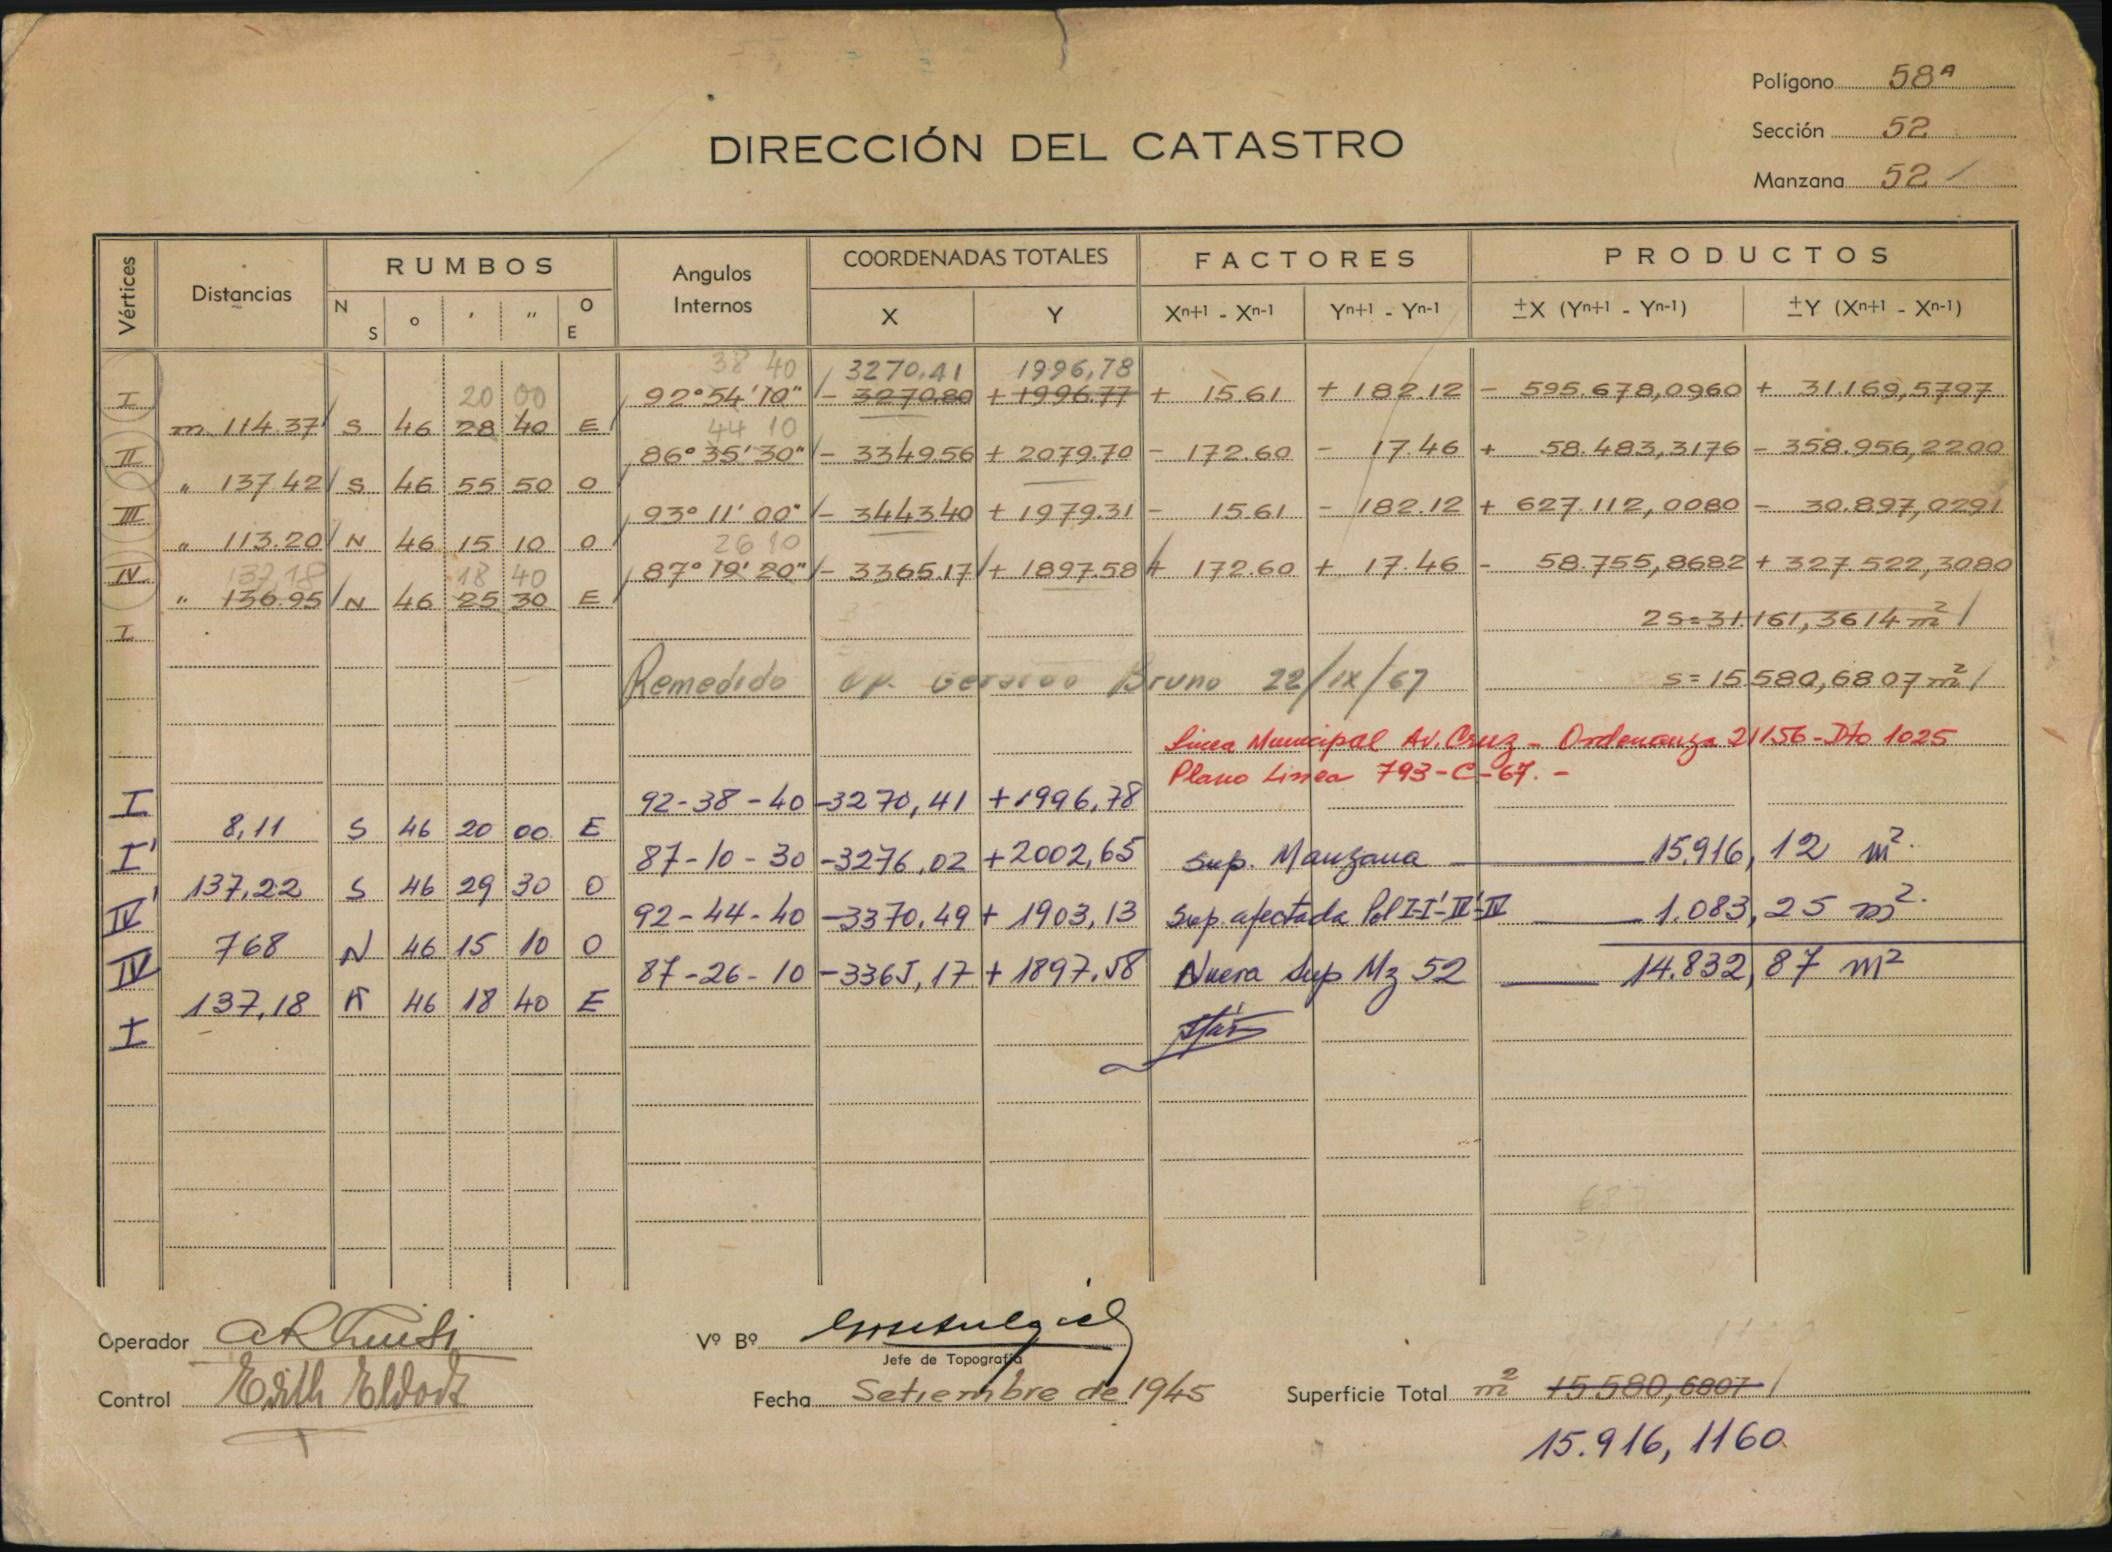 Polígono 58ᴬ
DIRECCIÓN DEL CATASTRO
Sección 52
Manzana 52 /
Vértices Distancias RUMBOS Angulos Internos COORDENADAS TOTALES FACTORES PRODUCTOS
N S o ' " O E X Y Xⁿ⁺¹ - Xⁿ⁻¹ Yⁿ⁺¹ - Yⁿ⁻¹ ±X (Yⁿ⁺¹ - Yⁿ⁻¹) ±Y (Xⁿ⁺¹ - Xⁿ⁻¹)
38 40 3270,41 1996,78
I 92°54'10" - 3270.80 + 1996.77 + 15.61 + 182.12 - 595.678,0960 + 31.169,5797
20 00
m. 114.37 S 46 28 40 E
44 10
II 86°35'30" - 3349.56 + 2079.70 - 172.60 - 17.46 + 58.483,3176 - 358.956,2200
" 137.42 S 46 55 50 O
III 93°11'00" - 3443.40 + 1979.31 - 15.61 - 182.12 + 627.112,0080 - 30.897,0291
" 113.20 N 46 15 10 O
26 10
IV 87°19'20" - 3365.17 + 1897.58 + 172.60 + 17.46 - 58.755,8682 + 327.522,3080
137,18 18 40
" 136.95 N 46 25 30 E
I 2S=31.161,3614 m² /
Remedido Op. Gerardo Bruno 22/IX/67 S=15.580,6807 m² /
Linea Municipal Av. Cruz - Ordenanza 21156 - Dto 1025
Plano Linea 793-C-67. -
I 92-38-40 -3270,41 +1996,78
8,11 S 46 20 00 E
I' 87-10-30 -3276,02 +2002,65 Sup. Manzana 15.916,12 m².
137,22 S 46 29 30 O
IV' 92-44-40 -3370,49 + 1903,13 Sup. afectada Pol I-I'-IV'-IV 1.083,25 m².
768 N 46 15 10 O
IV 87-26-10 -3365,17 + 1897.58 Nueva Sup Mz 52 14.832,87 m²
137,18 N 46 18 40 E
I
Operador Vº Bº
Jefe de Topografía
Control Edith Fecha Setiembre de 1945 Superficie Total m² 15.580,6807 /
15.916,1160